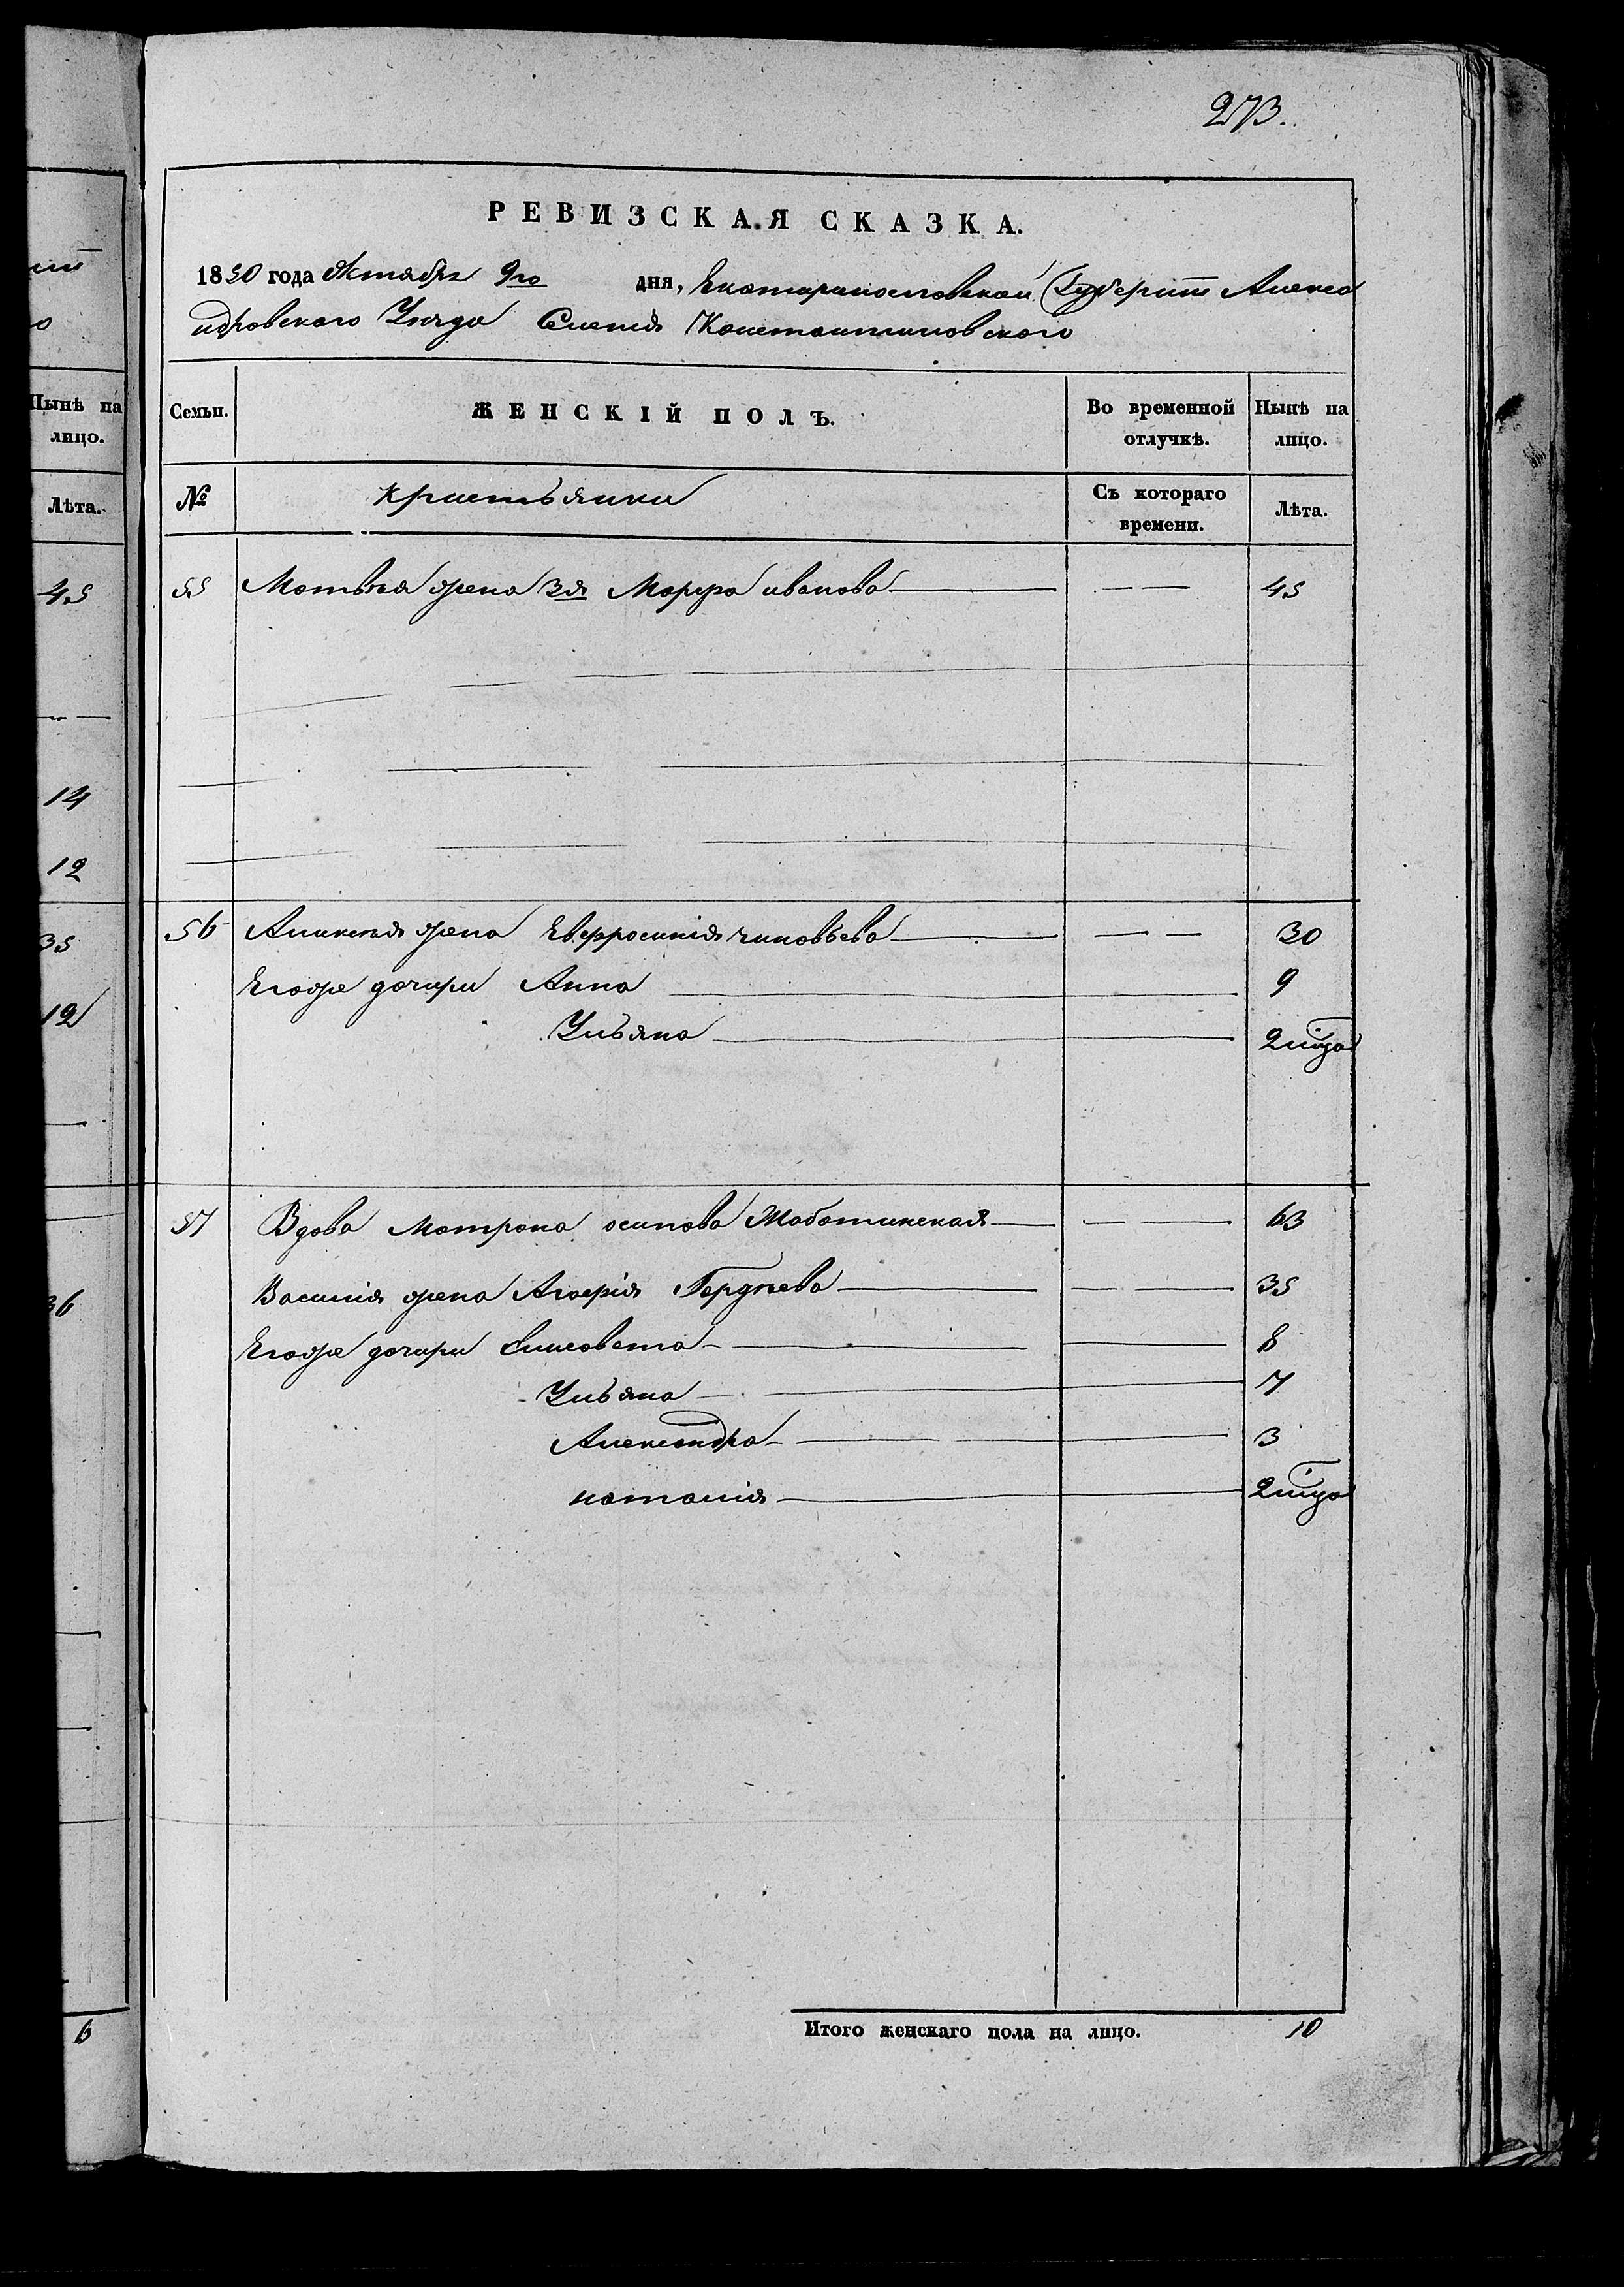 273.
РЕВИЗСКАЯ СКАЗКА.
1850 года Октября 9го дня, Екатеринославской Губернии Алекса
ндровского Уезда Селения Константиновского
Нынѣ на
лицо.
Лѣта.
45
14
12
35
12
36
6
Семьи. ЖЕНСКІЙ ПОЛЪ. Во временной отлучкѣ. Нынѣ на лицо.
№ Кристьянки Съ котораго времени. Лѣта.
55 Матвея жена 2я Марфа иванова 45
56 Аликсея жена Евфросинія зиновьева 30
Егоже дочири Анна 9
Ульяна 2 мца
57 Вдова Матрона осипова Жаботинская 63
Василия жена Агафія Гордеева 35
Егоже дочири Елисовета 8
Ульяна 7
Александра 3
наталія 2 мца
Итого женскаго пола на лицо. 10